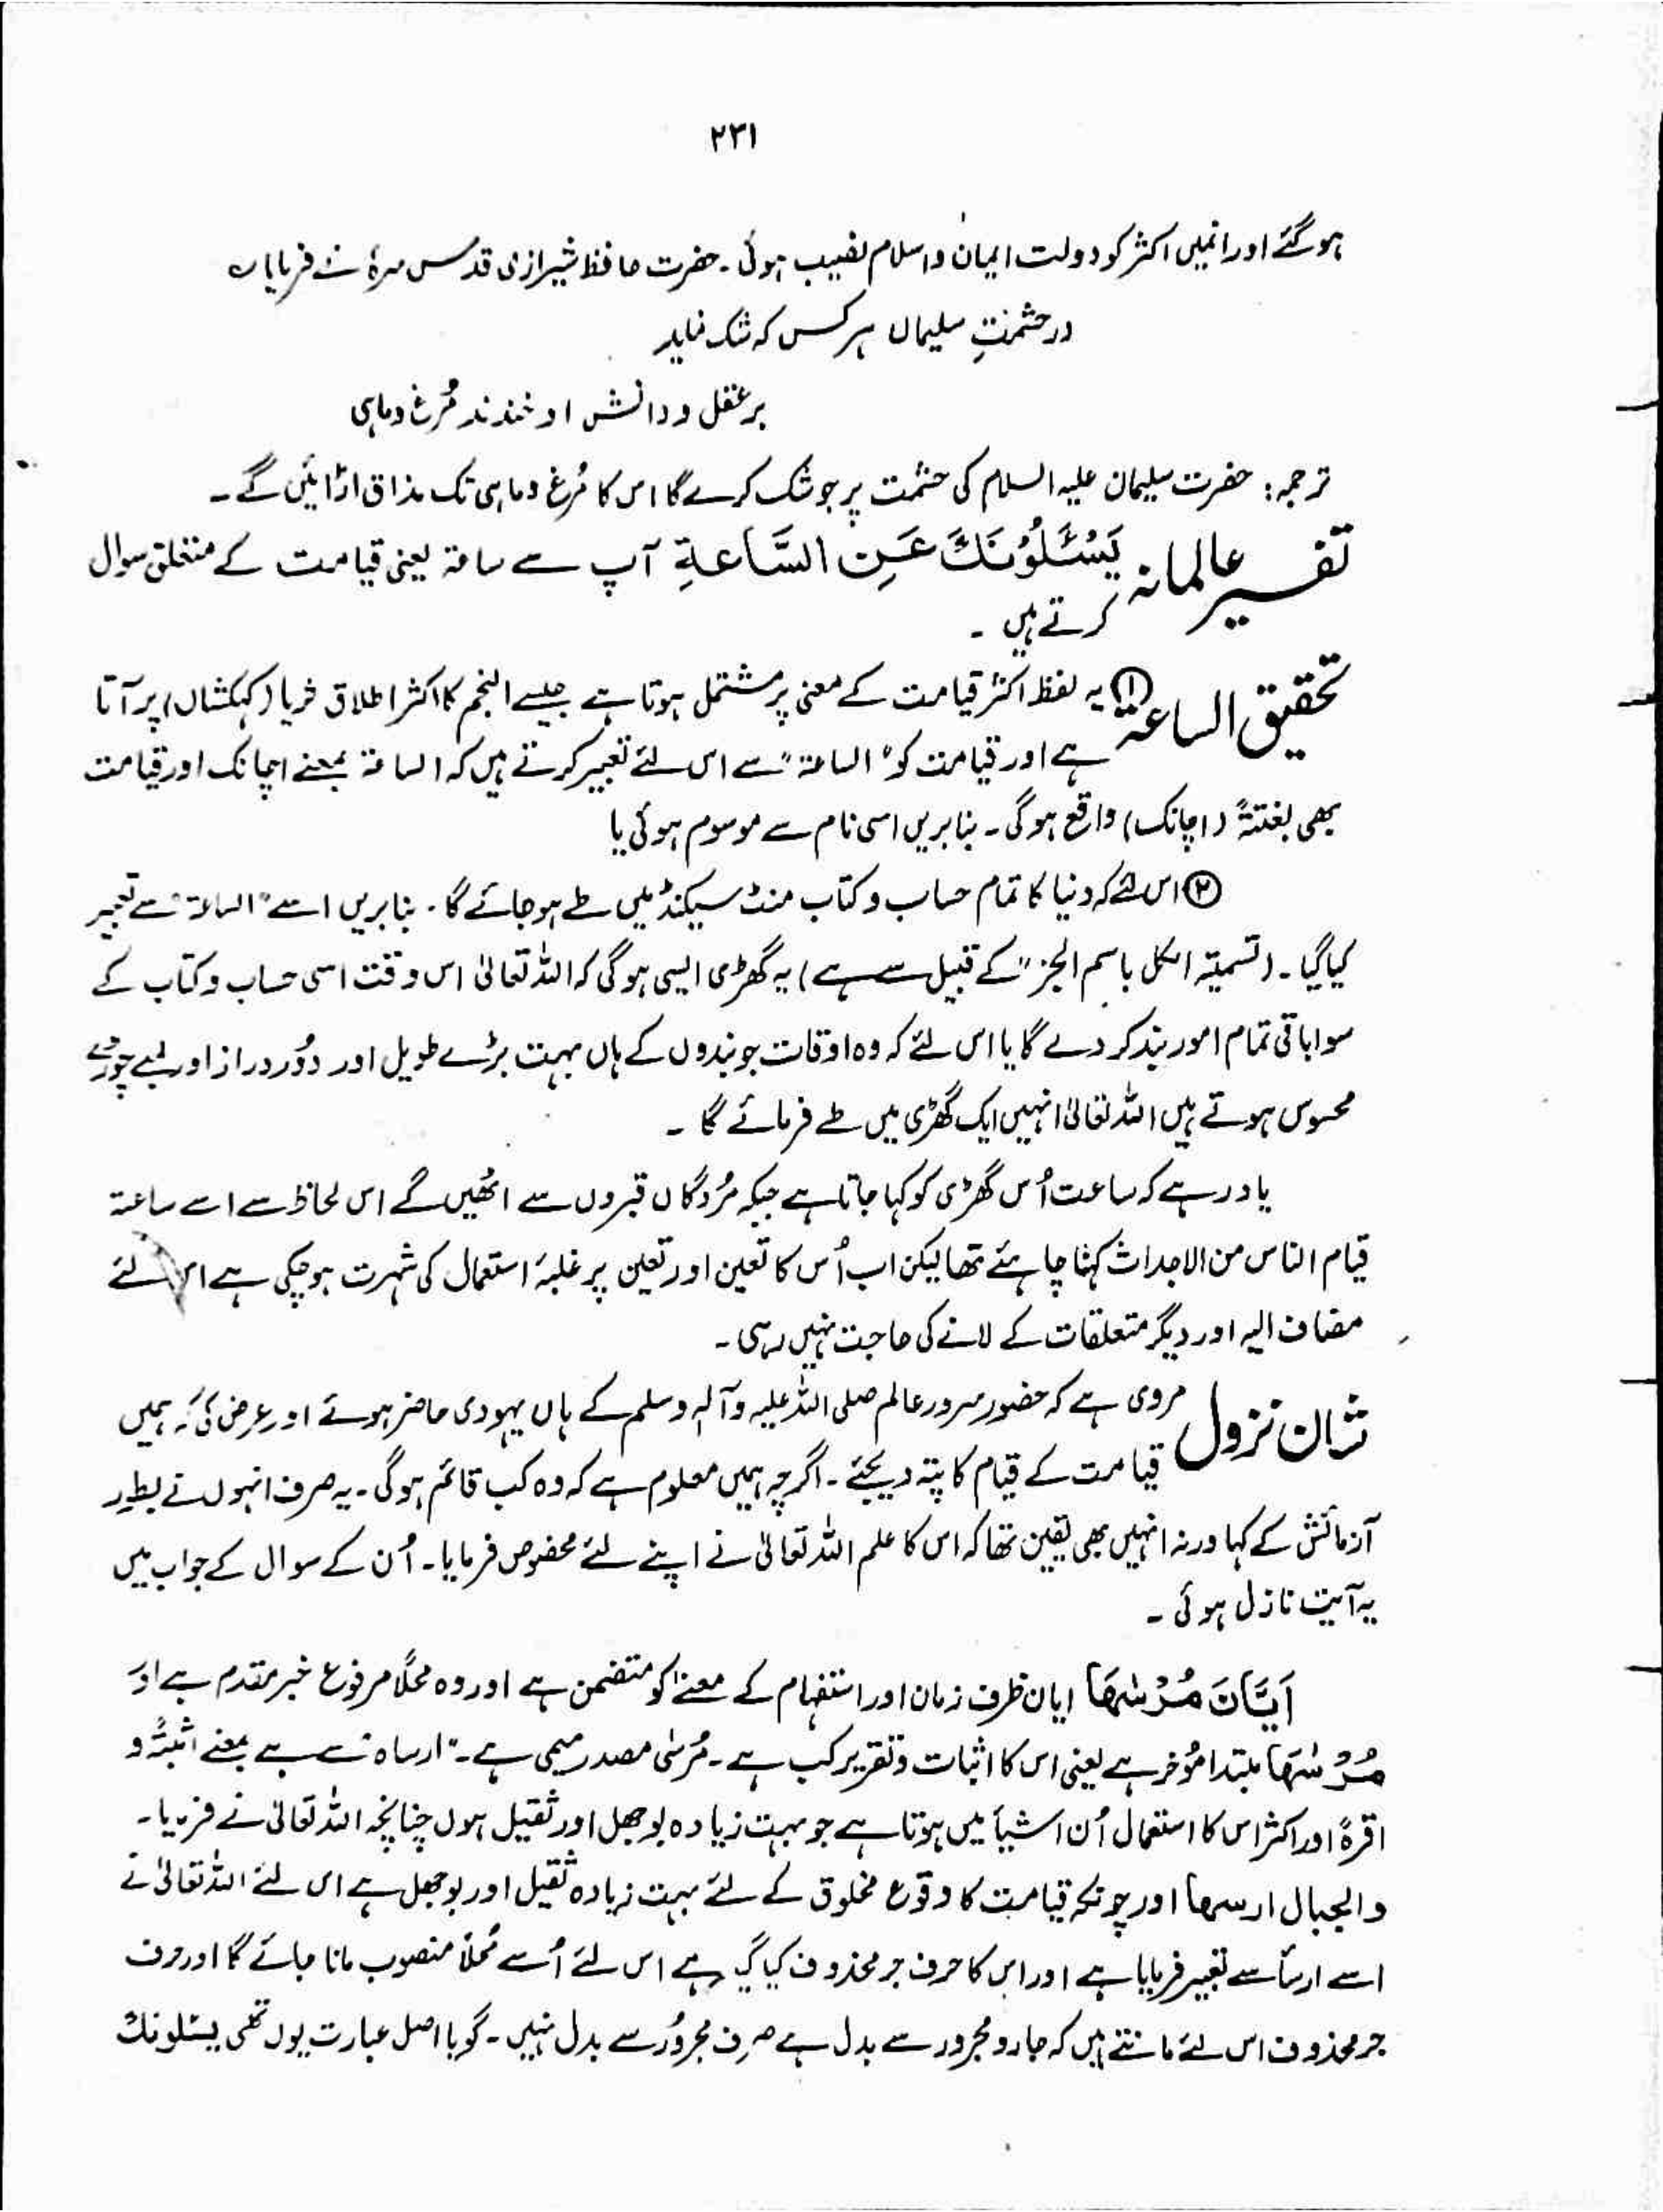 ۲۳۱
ہو گئے اور انمیں اکثر کو دولت ایمان و اسلام نصیب ہوئی۔ حضرت حافظ شیرازی قدس سرہٗ نے فرمایا ؎
در حشمتِ سلیماں ہر کس کہ شک نماید
بر عقل و دانش او خندند مُرغ و ماہی
ترجمہ: حضرت سلیمان علیہ السلام کی حشمت پر جو شک کرے گا اس کا مُرغ و ماہی تک مذاق اڑائیں گے۔
تفسیر عالمانہ یَسْئَلُوْنَكَ عَنِ السَّاعَةِ آپ سے ساعۃ یعنی قیامت کے متعلق سوال
کرتے ہیں۔
تحقیق الساعۃ ① یہ لفظ اکثر قیامت کے معنی پر مشتمل ہوتا ہے جیسے النجم کا اکثر اطلاق ثریا (کہکشاں) پر آتا
ہے اور قیامت کو "الساعۃ" سے اس لئے تعبیر کرتے ہیں کہ الساعۃ بمعنے اچانک اور قیامت
بھی بغتتۃً (اچانک) واقع ہوگی۔ بنا بریں اسی نام سے موسوم ہوئی یا
② اس لئے کہ دنیا کا تمام حساب و کتاب منٹ سیکنڈ میں طے ہو جائے گا۔ بنا بریں اسے "الساعۃ" سے تعبیر
کیا گیا۔ (تسمیۃ الکل باسم الجز" کے قبیل سے ہے) یہ گھڑی ایسی ہوگی کہ اللہ تعالیٰ اس وقت اسی حساب و کتاب کے
سوا باقی تمام امور بند کر دے گا یا اس لئے کہ وہ اوقات جو بندوں کے ہاں بہت بڑے طویل اور دُور دراز اور لمبے چوڑے
محسوس ہوتے ہیں اللہ تعالیٰ انہیں ایک گھڑی میں طے فرمائے گا۔
یاد رہے کہ ساعت اُس گھڑی کو کہا جاتا ہے جبکہ مُردگاں قبروں سے اٹھیں گے اس لحاظ سے اسے ساعۃ
قیام الناس من الاجداث کہنا چاہئے تھا لیکن اب اُس کا تعین اور تعین پر غلبۂ استعمال کی شہرت ہو چکی ہے اس لئے
مضاف الیہ اور دیگر متعلقات کے لانے کی حاجت نہیں رہی۔
شان نزول مروی ہے کہ حضور سرور عالم صلی اللہ علیہ وآلہ وسلم کے ہاں یہودی حاضر ہوئے اور عرض کی کہ ہمیں
قیامت کے قیام کا پتہ دیجئے۔ اگرچہ ہمیں معلوم ہے کہ وہ کب قائم ہوگی۔ یہ صرف انہوں نے بطور
آزمائش کے کہا ورنہ انہیں بھی یقین تھا کہ اس کا علم اللہ تعالیٰ نے اپنے لئے مخصوص فرمایا۔ اُن کے سوال کے جواب میں
یہ آیت نازل ہوئی۔
اَیَّانَ مُرْسٰھَا ایان ظرف زمان اور استفہام کے معنےٰ کو متضمن ہے اور وہ محلًا مرفوع خبر مقدم ہے اور
مُرْسٰھَا مبتدا مُوخر ہے یعنی اس کا اثبات و تقریر کب ہے۔ مُرسٰی مصدر میمی ہے۔ "ارساہ" سے ہے بمعنے اثبتہٗ و
اقرہٗ اور اکثر اس کا استعمال اُن اشیأ میں ہوتا ہے جو بہت زیادہ بوجھل اور ثقیل ہوں چنانچہ اللہ تعالیٰ نے فرمایا۔
والجبال ارسھا اور چونکہ قیامت کا وقوع مخلوق کے لئے بہت زیادہ ثقیل اور بوجھل ہے اس لئے اللہ تعالیٰ نے
اسے ارسأ سے تعبیر فرمایا ہے اور اس کا حرف جر محذوف کیا گیا ہے اس لئے اُسے مُحلًا منصوب مانا جائے گا اور حرف
جر محذوف اس لئے مانتے ہیں کہ جار و مجرور سے بدل ہے صرف مجرُور سے بدل نہیں۔ گویا اصل عبارت یوں تھی یسئلونك